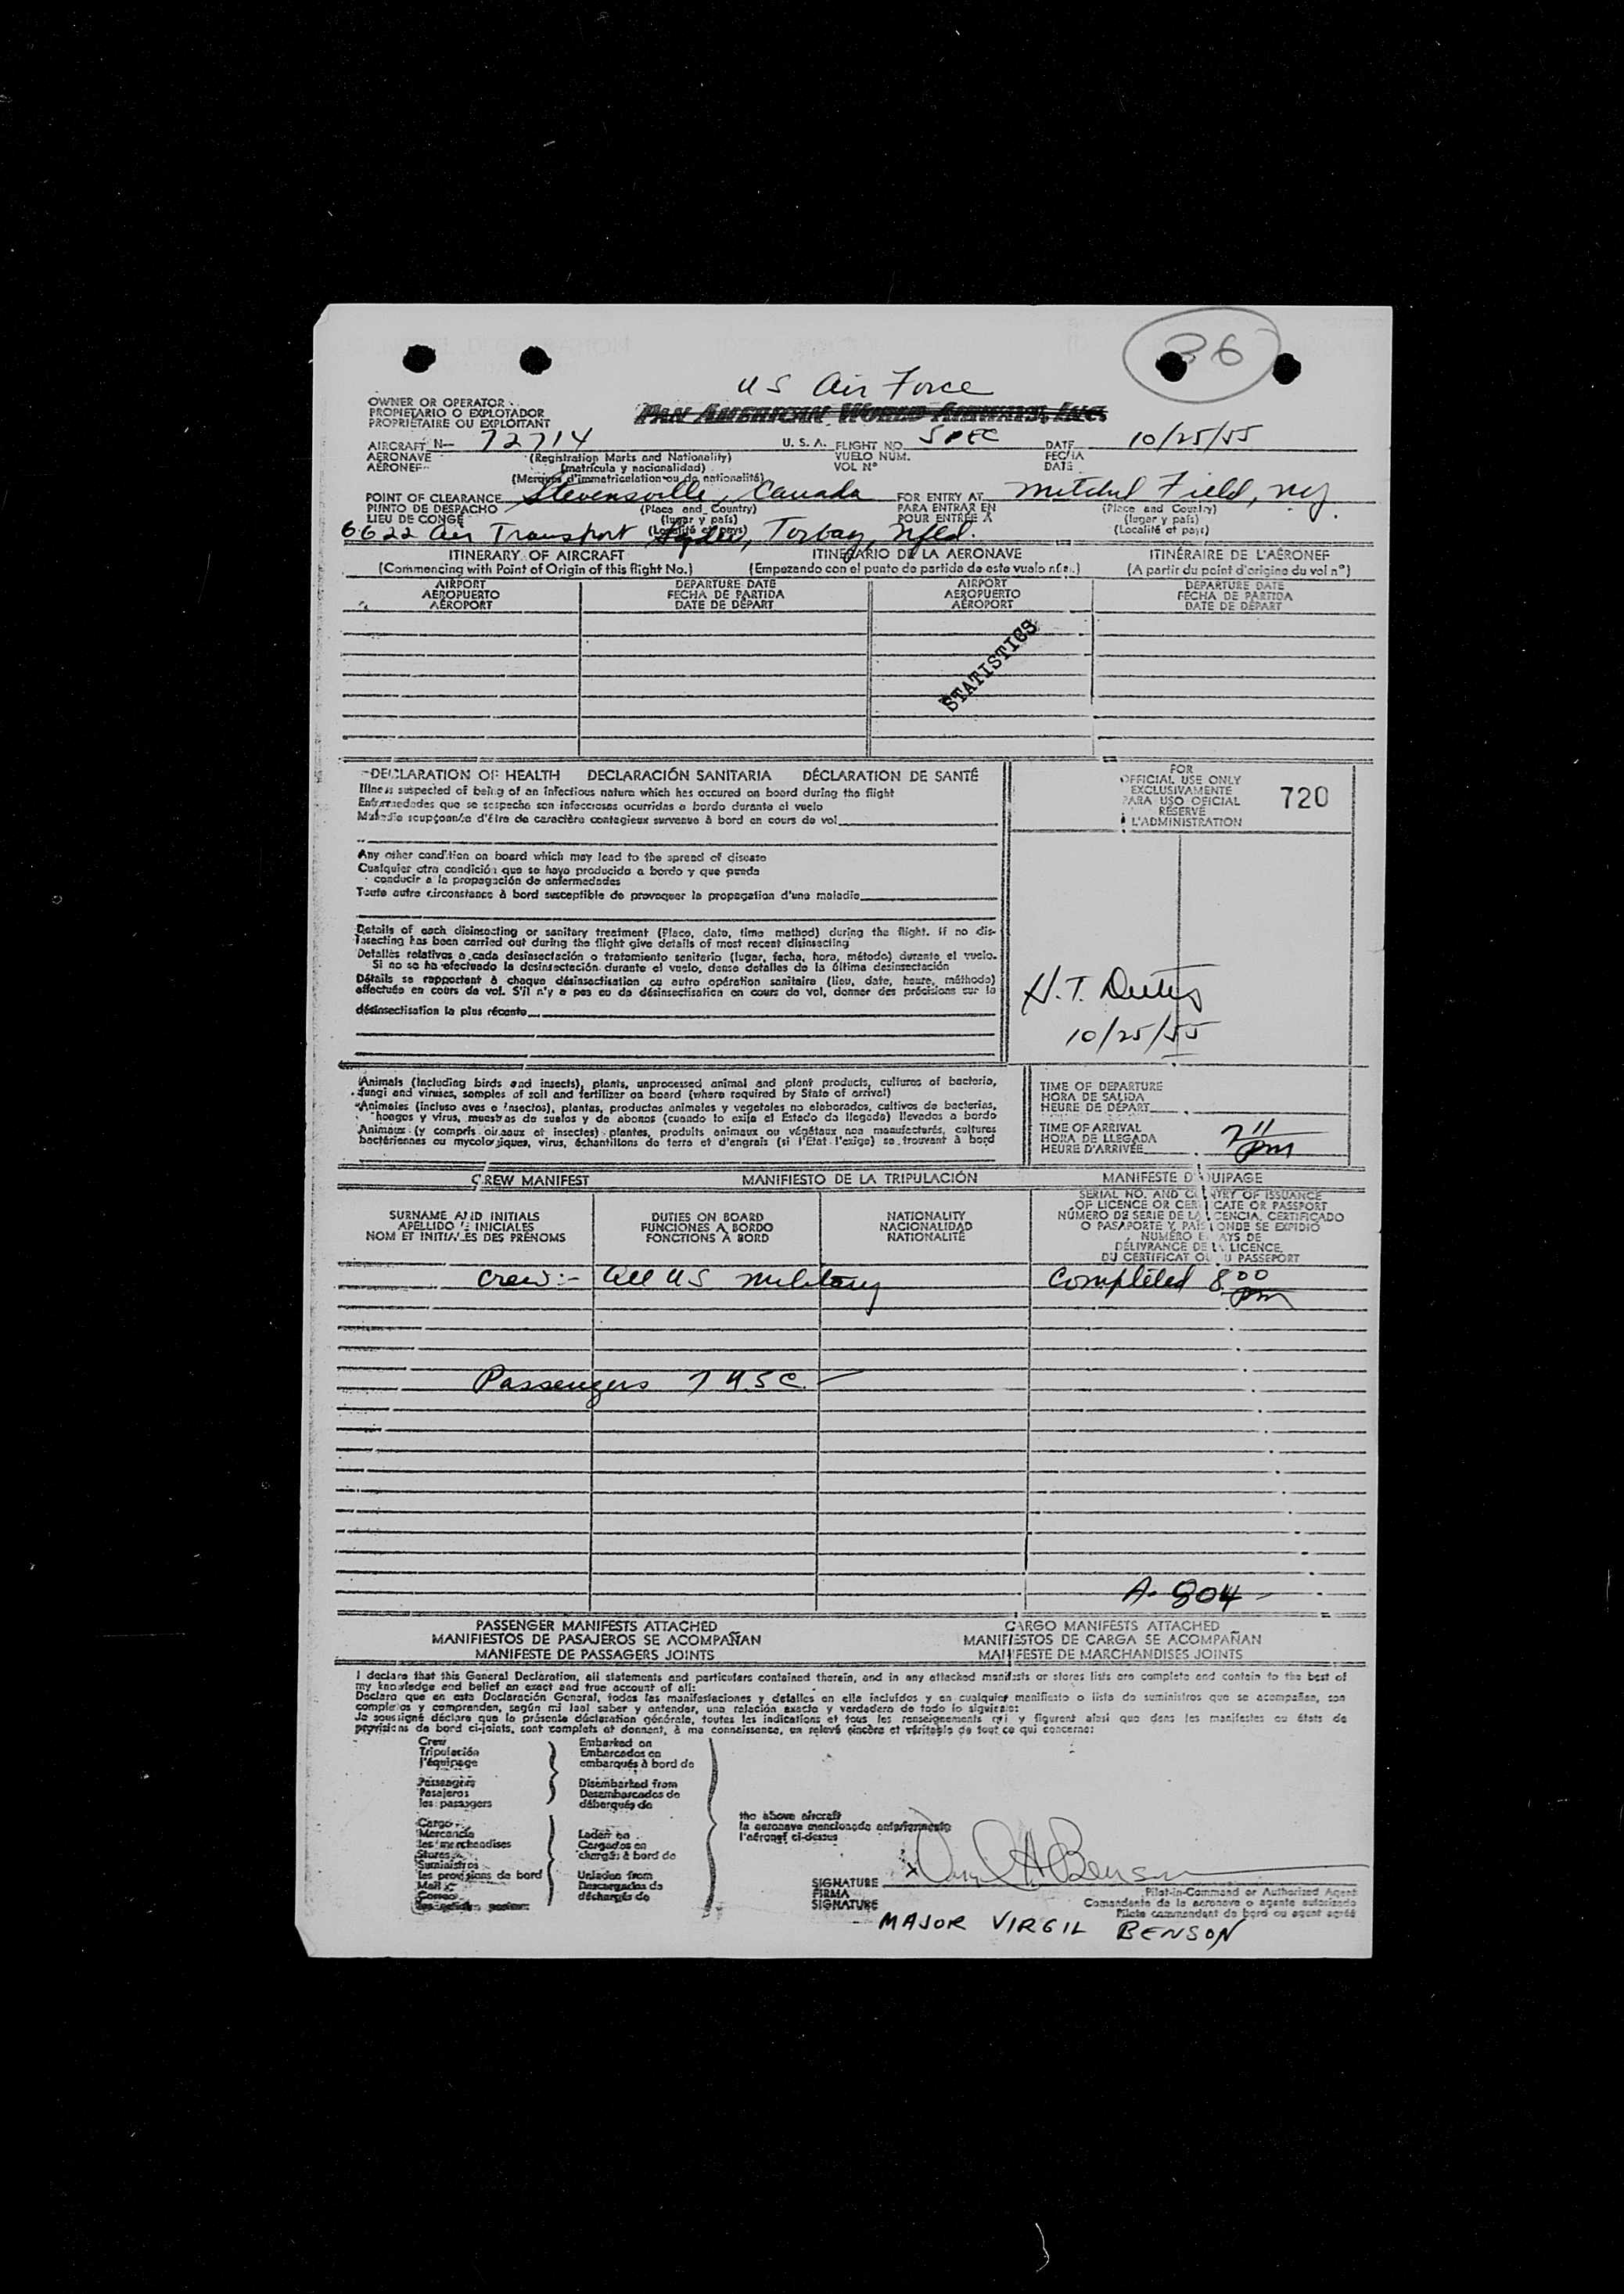 36
US Air Force
OWNER OR OPERATOR
PROPIETARIO O EXPLOTADOR
PROPRIÉTAIRE OU EXPLOITANT
PAN AMERICAN WORLD AIRWAYS, INC.
AIRCRAFT N- 72714 U. S. A. FLIGHT NO. SPEC DATE 10/25/55
AERONAVE (Registration Marks and Nationality) VUELO NUM. FECHA
AÉRONEF (matrícula y nacionalidad) VOL N° DATE
(Marques d'immatriculation ou de nationalité)
POINT OF CLEARANCE Stevensville, Canada FOR ENTRY AT Mitchel Field, NY.
PUNTO DE DESPACHO (Place and Country) PARA ENTRAR EN (Place and Country)
LIEU DE CONGÉ (lugar y país) POUR ENTRÉE À (lugar y país)
(Localité et pays) (Localité et pays)
6622 Air Transport Torbay, Nfld.
ITINERARY OF AIRCRAFT ITINERARIO DE LA AERONAVE ITINÉRAIRE DE L'AÉRONEF
(Commencing with Point of Origin of this flight No.) (Empezando con el punto de partida de este vuelo núm.) (A partir du point d'origine du vol n°)
AIRPORT DEPARTURE DATE AIRPORT DEPARTURE DATE
AEROPUERTO FECHA DE PARTIDA AEROPUERTO FECHA DE PARTIDA
AÉROPORT DATE DE DÉPART AÉROPORT DATE DE DÉPART
STATISTICS
DECLARATION OF HEALTH DECLARACIÓN SANITARIA DÉCLARATION DE SANTÉ
Illness suspected of being of an infectious nature which has occured on board during the flight
Enfermedades que se sospecha son infecciosas ocurridas a bordo durante el vuelo
Maladie soupçonnée d'être de caractère contagieux survenue à bord en cours de vol
FOR
OFFICIAL USE ONLY
EXCLUSIVAMENTE
PARA USO OFICIAL
RÉSERVÉ
À L'ADMINISTRATION
720
Any other condition on board which may lead to the spread of disease
Cualquier otra condición que se haya producido a bordo y que pueda
conducir a la propagación de enfermedades
Toute autre circonstance à bord susceptible de provoquer la propagation d'une maladie
Details of each disinsecting or sanitary treatment (Place, date, time method) during the flight. If no dis-
insecting has been carried out during the flight give details of most recent disinsecting
Detalles relativos a cada desinsectación o tratamiento sanitario (lugar, fecha, hora, método) durante el vuelo.
Si no se ha efectuado la desinsectación durante el vuelo, dense detalles de la última desinsectación
Détails se rapportant à chaque désinsectisation ou autre opération sanitaire (lieu, date, heure, méthode)
effectuée en cours de vol. S'il n'y a pas eu de désinsectisation en cours de vol, donner des précisions sur la
désinsectisation la plus récente
H. T.
10/25/55
Animals (including birds and insects), plants, unprocessed animal and plant products, cultures of bacteria,
fungi and viruses, samples of soil and fertilizer on board (where required by State of arrival)
Animales (incluso aves e insectos), plantas, productos animales y vegetales no elaborados, cultivos de bacterias,
hongos y virus, muestras de suelos y de abonos (cuando lo exija el Estado de llegada) llevados a bordo
Animaux (y compris oiseaux et insectes) plantes, produits animaux ou végétaux non manufacturés, cultures
bactériennes ou mycologiques, virus, échantillons de terre et d'engrais (si l'État l'exige) se trouvant à bord
TIME OF DEPARTURE
HORA DE SALIDA
HEURE DE DÉPART
TIME OF ARRIVAL
HORA DE LLEGADA
HEURE D'ARRIVÉE 7 11 pm
CREW MANIFEST MANIFIESTO DE LA TRIPULACIÓN MANIFESTE D'ÉQUIPAGE
SURNAME AND INITIALS
APELLIDO E INICIALES
NOM ET INITIALES DES PRÉNOMS
DUTIES ON BOARD
FUNCIONES A BORDO
FONCTIONS À BORD
NATIONALITY
NACIONALIDAD
NATIONALITÉ
SERIAL NO. AND COUNTRY OF ISSUANCE
OF LICENCE OR CERTIFICATE OR PASSPORT
NÚMERO DE SERIE DE LA LICENCIA, CERTIFICADO
O PASAPORTE Y PAÍS DONDE SE EXPIDIÓ
NUMÉRO ET PAYS DE
DÉLIVRANCE DE LA LICENCE,
DU CERTIFICAT OU DU PASSEPORT
Crew:- All US Military Completed 8 00 pm
Passengers 7 USC.
A-804
PASSENGER MANIFESTS ATTACHED CARGO MANIFESTS ATTACHED
MANIFIESTOS DE PASAJEROS SE ACOMPAÑAN MANIFIESTOS DE CARGA SE ACOMPAÑAN
MANIFESTE DE PASSAGERS JOINTS MANIFESTE DE MARCHANDISES JOINTS
I declare that this General Declaration, all statements and particulars contained therein, and in any attached manifests or stores lists are complete and contain to the best of
my knowledge and belief an exact and true account of all:
Declaro que en esta Declaración General, todas las manifestaciones y detalles en ella incluidos y en cualquier manifiesto o lista de suministros que se acompañan, son
completos y comprenden, según mi leal saber y entender, una relación exacta y verdadera de todo lo siguiente:
Je soussigné déclare que la présente déclaration générale, toutes les indications et tous les renseignements qui y figurent ainsi que dans les manifestes ou états de
provisions de bord ci-joints, sont complets et donnent, à ma connaissance, un relevé sincère et véritable de tout ce qui concerne:
Crew
Tripulación
l'équipage
Passengers
Pasajeros
les passagers
Embarked on
Embarcados en
embarqués à bord de
Disembarked from
Desembarcados de
débarqués de
Cargo
Mercancía
les merchandises
Stores
Suministros
les provisions de bord
Mail
Correo
Laden on
Cargados en
chargés à bord de
Unladen from
Descargados de
déchargés de
the above aircraft
la aeronave mencionada anteriormente
l'aéronef ci-dessus
SIGNATURE x Virgil H Benson
FIRMA
SIGNATURE
Pilot-in-Command or Authorized Agent
Comandante de la aeronave o agente autorizado
Pilote commandant de bord ou agent agréé
MAJOR VIRGIL BENSON